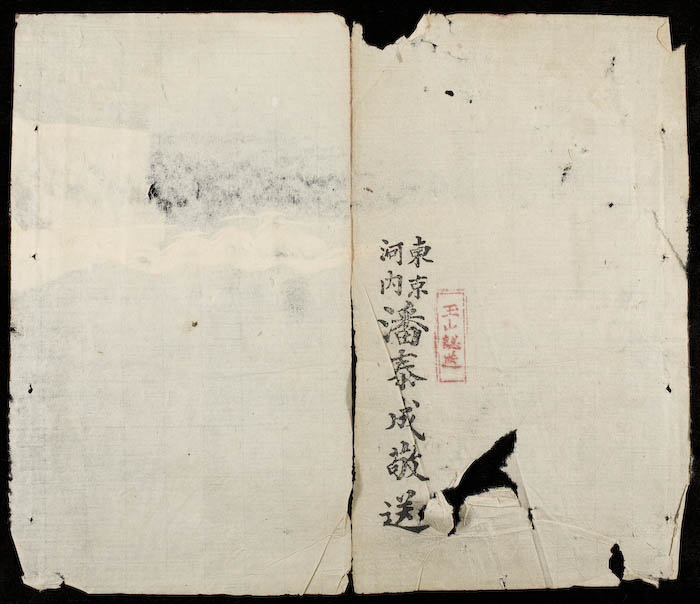 玉山誌送
東京
河内
潘泰成敬送